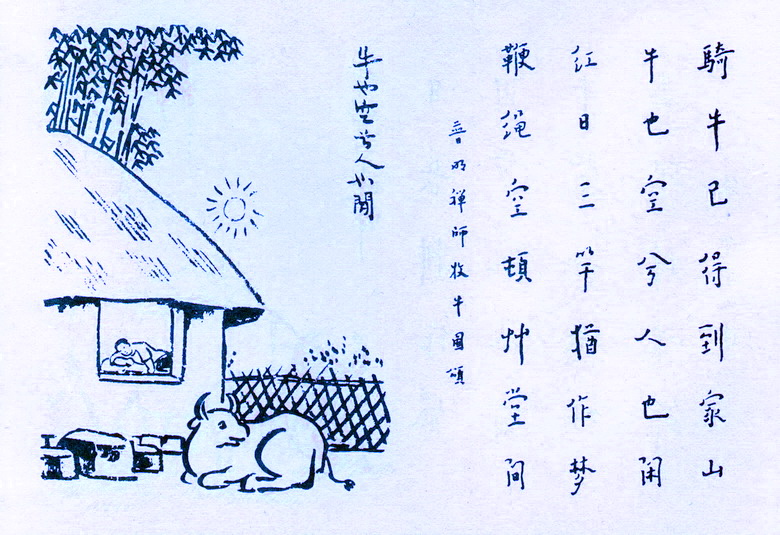 騎牛已得到家山
牛也空兮人也閑
紅日三竿猶作梦
鞭繩空頓艸堂間
普明禅師牧牛圖頌
牛也空兮人也閒